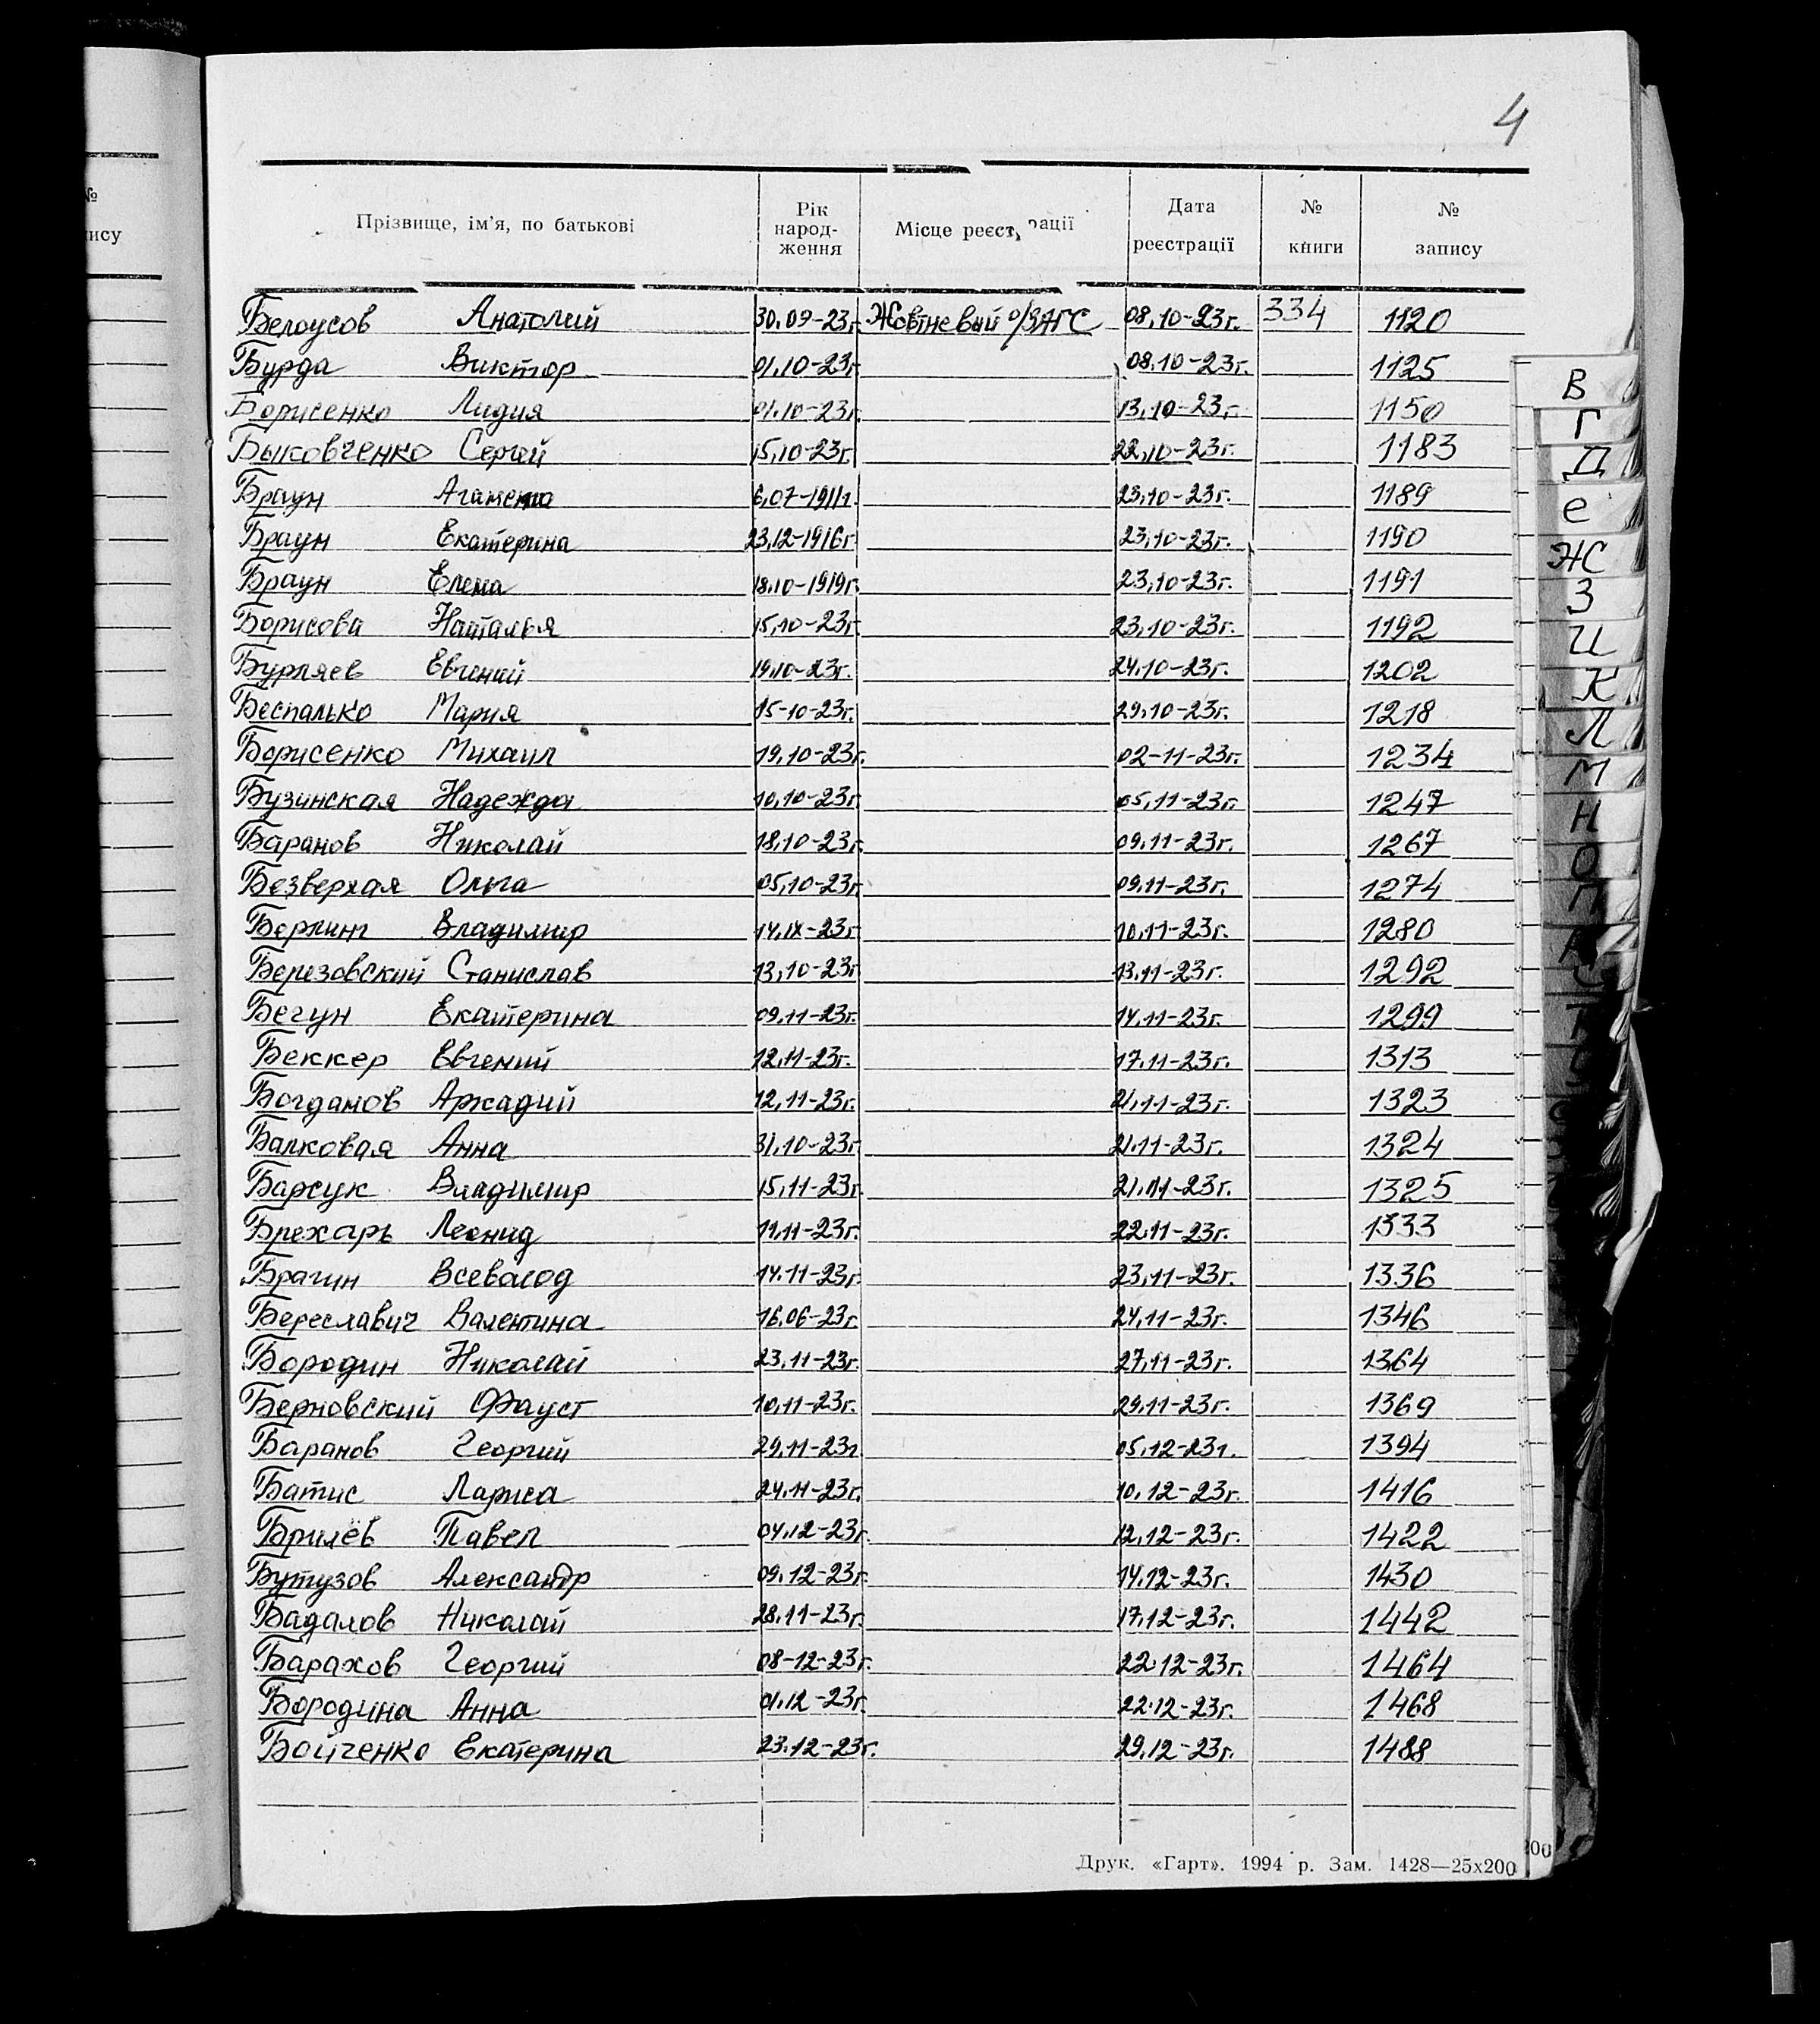 4
№
ису
Прізвище, ім'я, по батькові Рік народ-ження Місце реєстрації Дата реєстрації № книги № запису
Белоусов Анатолий 30.09-23г. Жовтневый о/ЗАГС 08.10-23г. 334 1120
Бурда Виктор 01.10-23г. 08.10-23г. 1125
Борисенко Лидия 01.10-23г. 13.10-23г. 1150
Быковченко Сергей 15.10-23г. 22.10-23г. 1183
Браун 6.07-1911г. 23.10-23г. 1189
Браун Екатерина 23.12-1916г. 23.10-23г. 1190
Браун Елена 18.10-1919г. 23.10-23г. 1191
Борисова Наталья 15.10-23г. 23.10-23г. 1192
Бурляев Евгений 19.10-23г. 24.10-23г. 1202
Беспалько Мария 15-10-23г. 29.10-23г. 1218
Борисенко Михаил 19.10-23г. 02-11-23г. 1234
Бузинская Надежда 10.10-23г. 05.11-23г. 1247
Баранов Николай 18.10-23г. 09.11-23г. 1267
Безверхая Ольга 05.10-23г. 09.11-23г. 1274
Берлинг Владимир 14.IX-23г. 10.11-23г. 1280
Березовский Станислав 13.10-23г. 13.11-23г. 1292
Бегун Екатерина 09.11-23г. 14.11-23г. 1299
Беккер Евгений 12.11-23г. 17.11-23г. 1313
Богданов Аркадий 12.11-23г. 21.11-23г. 1323
Балковая Анна 31.10-23г. 21.11-23г. 1324
Барсук Владимир 15.11-23г. 21.11-23г. 1325
Брехарь Леонид 11.11-23г. 22.11-23г. 1333
Брагин Всеволод 14.11-23г. 23.11-23г. 1336
Береславич Валентина 16.06-23г. 24.11-23г. 1346
Бородин Николай 23.11-23г. 27.11-23г. 1364
Берновский Фауст 10.11-23г. 29.11-23г. 1369
Баранов Георгий 29.11-23г. 05.12-23г. 1394
Батис Лариса 24.11-23г. 10.12-23г. 1416
Брилёв Павел 04.12-23г. 12.12-23г. 1422
Бутузов Александр 09.12-23г. 14.12-23г. 1430
Бадалов Николай 28.11-23г. 17.12-23г. 1442
Барахов Георгий 08-12-23г. 22.12-23г. 1464
Бородина Анна 01.12-23г. 22.12-23г. 1468
Бойченко Екатерина 23.12-23г. 29.12-23г. 1488
Друк. «Гарт». 1994 р. Зам. 1428—25х200
00
В
Г
Д
е
Ж
З
И
К
Л
М
Н
О
П